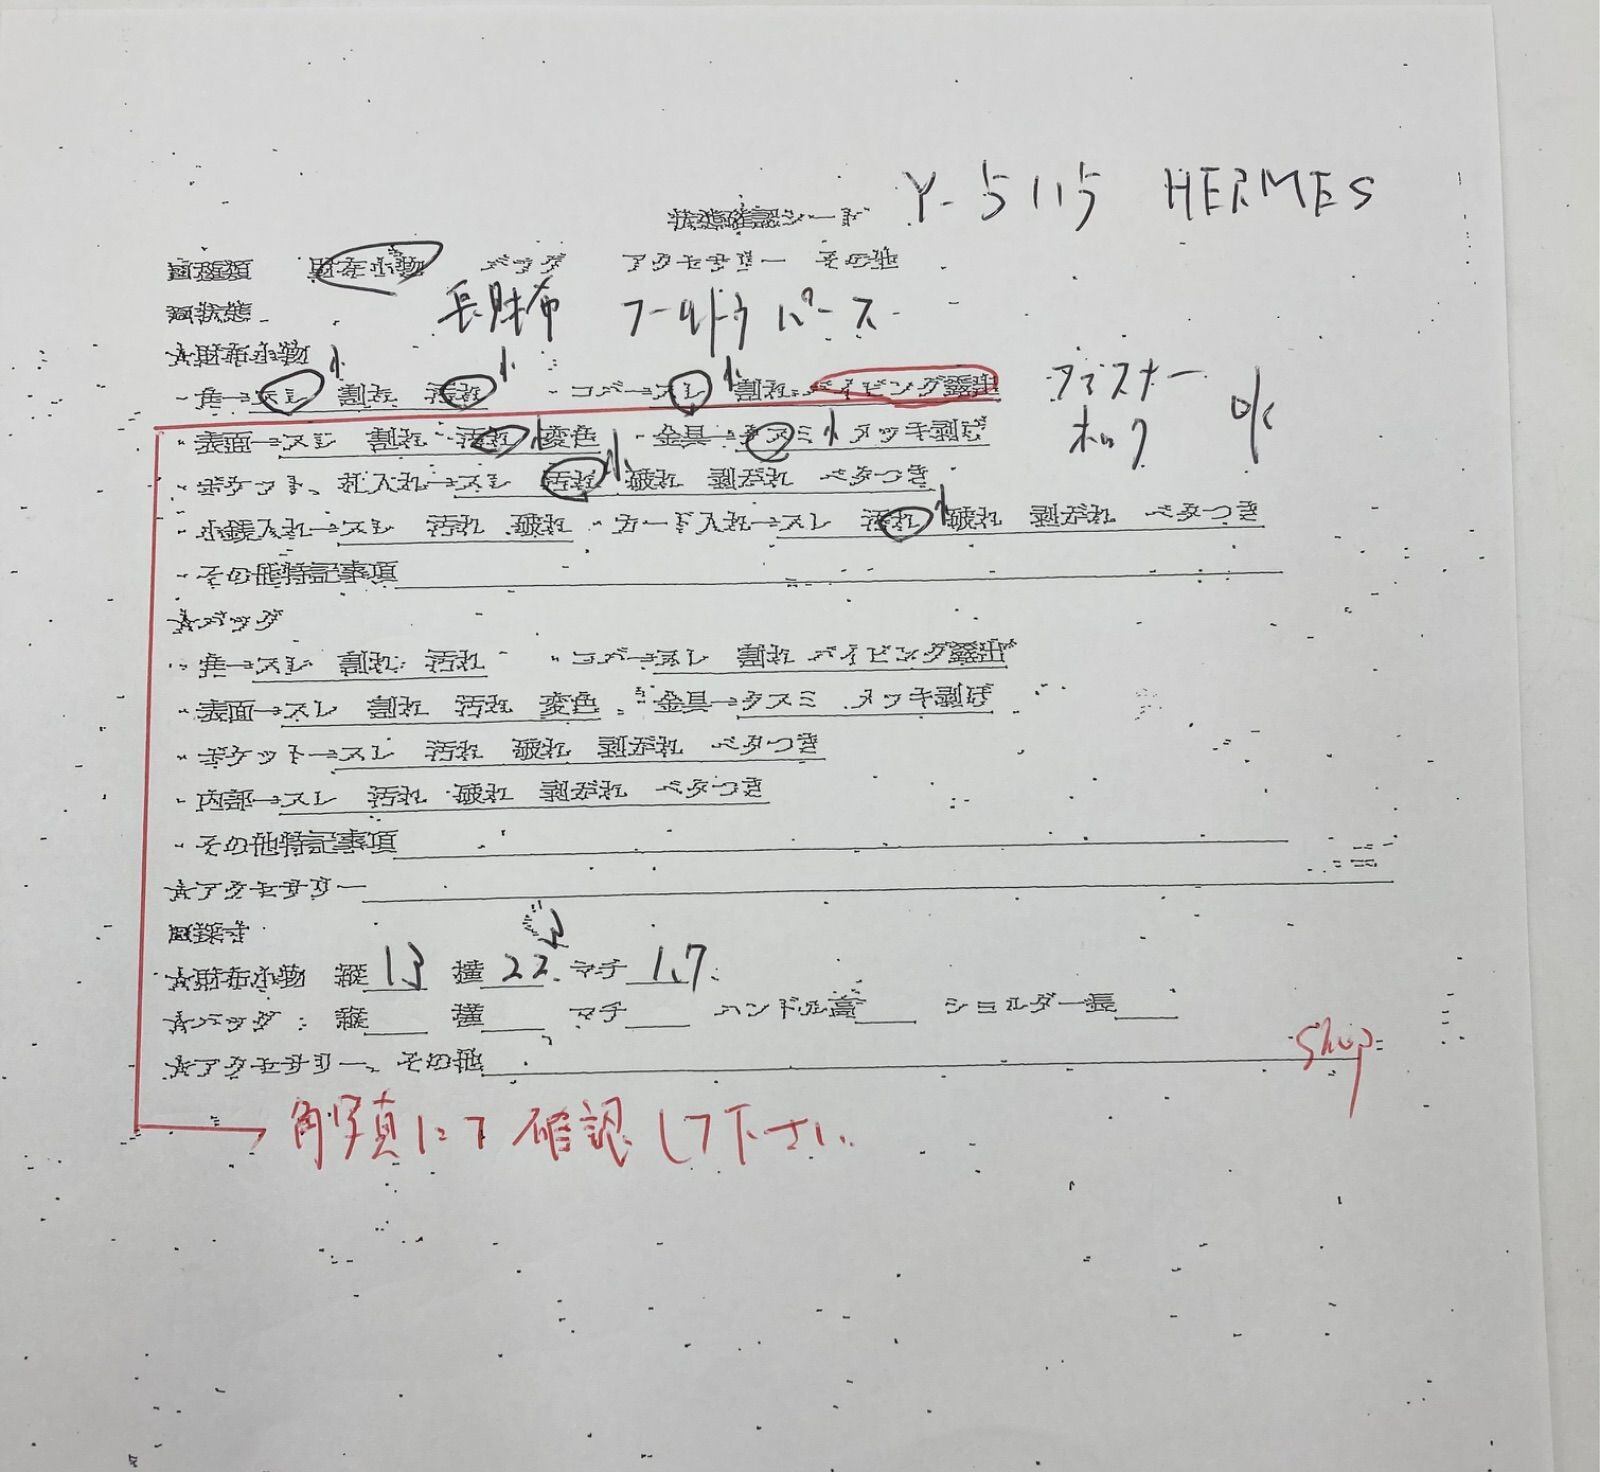 Y-5115 HERMES
状態確認シート
□種類 財布小物 バッグ アクセサリー その他
□状態 長財布 フールトゥ パース
★財布小物
・角→スレ 小 割れ 汚れ 小 ・コバ→スレ 小 割れ パイピング露出 ファスナー ok
・表面→スレ 割れ 汚れ 小 変色 ・金具→クスミ 小 メッキ剥げ ホック
・ポケット、札入れ→スレ 汚れ 小 破れ 剥がれ ベタつき
・小銭入れ→スレ 汚れ 破れ ・カード入れ→スレ 汚れ 小 破れ 剥がれ ベタつき
・その他特記事項
★バッグ
・角→スレ 割れ 汚れ ・コバ→スレ 割れ パイピング露出
・表面→スレ 割れ 汚れ 変色 ・金具→クスミ メッキ剥げ
・ポケット→スレ 汚れ 破れ 剥がれ ベタつき
・内部→スレ 汚れ 破れ 剥がれ ベタつき
・その他特記事項
★アクセサリー
□採寸
★財布小物 縦 13 横 22 マチ 1.7
★バッグ: 縦 横 マチ ハンドル高 ショルダー長
★アクセサリー、その他
shop
角写真にて確認して下さい.